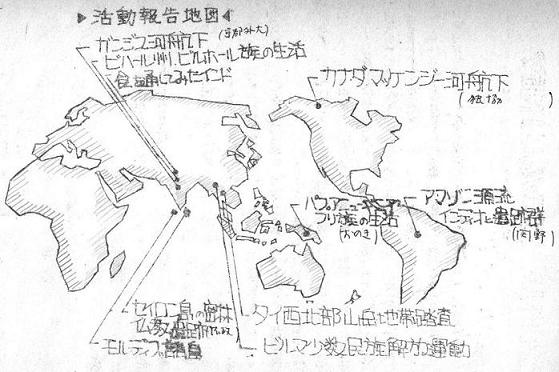 ▶活動報告地図◀
ガンジス河舟航下
ビハール州、ビルホール族の生活
食を通してみたインド
カナダ マッケンジー河舟航下
パプアニューギニア
フリ族の生活
アマゾン源流
インディオと遺跡群
(関野)
セイロン島の密林
仏教遺跡
タイ西北部山岳地帯踏査
モルディブ諸島
ビルマ少数民族解放運動